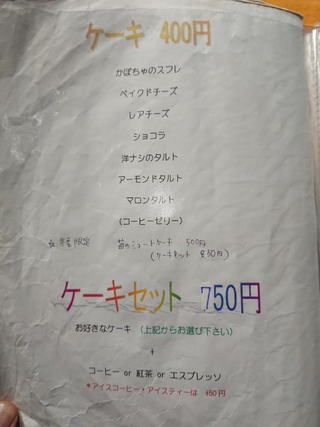 ケーキ 400円
かぼちゃのスフレ
ベイクドチーズ
レアチーズ
ショコラ
洋ナシのタルト
アーモンドタルト
マロンタルト
(コーヒーゼリー)
限定 苺のショートケーキ 500円
(ケーキセット 850円)
ケーキセット 750円
お好きなケーキ (上記からお選び下さい)
+
コーヒー or 紅茶 or エスプレッソ
*アイスコーヒー・アイスティーは +50円